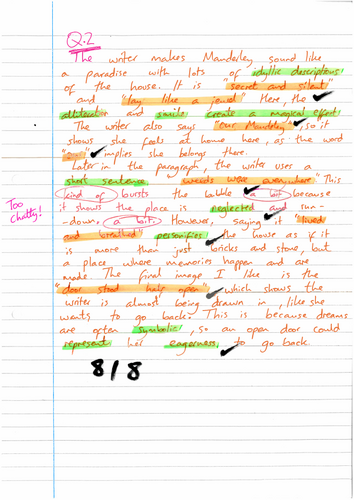 Q.2
The writer makes Manderley sound like
a paradise with lots of idyllic descriptions
of the house. It is "secret and silent"
and "lay like a jewel" Here, the
alliteration and simile create a magical effect.
The writer also says "Our Manderley", so it
shows she feels at home here, as the word
"our" implies she belongs there.
Later in the paragraph, the writer uses a
short sentence "weeds were everywhere" This
kind of bursts the bubble a bit because
Too chatty!
it shows the place is neglected and run-
-down, a bit. However, saying it "lived
and breathed" personifies the house as if it
is more than just bricks and stone, but
a place where memories happen and are
made. The final image I like is the
"door stood half open", which shows the
writer is almost being drawn in, like she
wants to go back. This is because dreams
are often symbolic, so an open door could
represent her eagerness to go back.
8/8